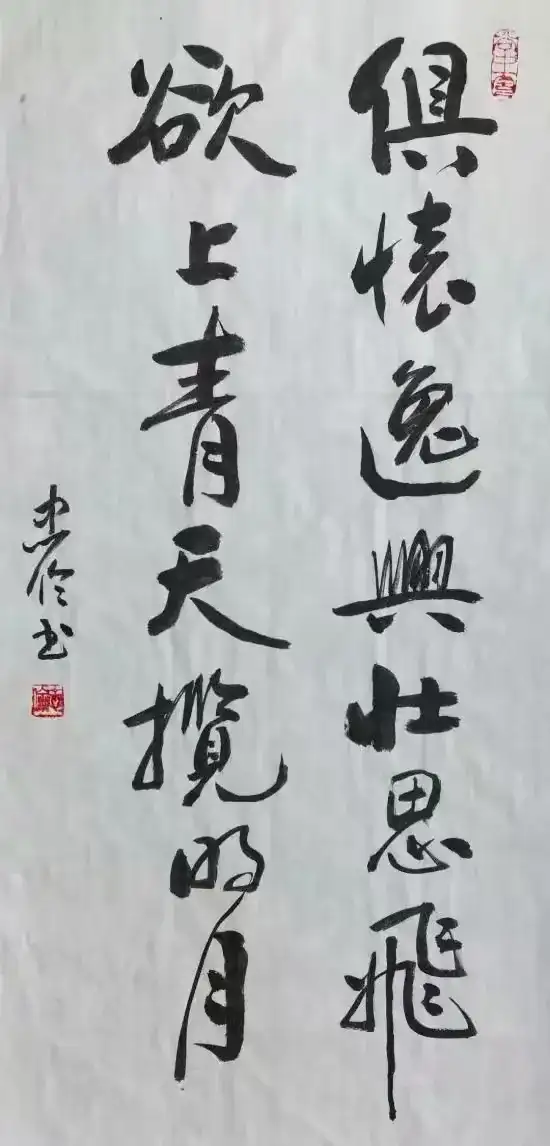 俱懷逸興壯思飛
欲上青天攬明月
忠伶书